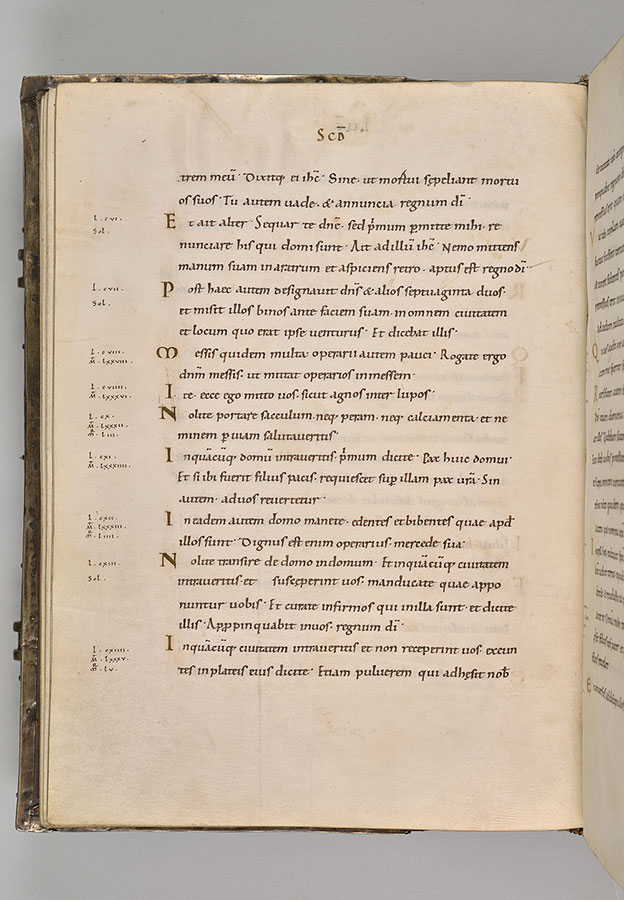 SCD̄
trem meū· Dixitq; ei ih̄c· Sine· ut mortui sepeliant mortu
os suos· Tu autem uade· & annuncia regnum dī·
L. cvi.
Sol.
Et ait alter· Sequar te dn̄e· sed p̄mum p̄mitte mihi· re
nunciare his qui domi sunt· Ait ad illū ih̄c· Nemo mittens
manum suam in aratrum et aspiciens retro· aptus est regno dī·
L. cvii.
Sol.
Post haec autem designauit dn̄s & alios septuaginta duos·
et misit illos binos ante faciem suam· in omnem ciuitatem
et locum quo erat ipse uenturus· Et dicebat illis·
L. cviii.
M̄. lxxviii.
Messis quidem multa· operarii autem pauci· Rogate ergo
dnm̄ messis· ut mittat operarios in messem·
L. cviiii.
M̄. lxxxvi.
Ite· ecce ego mitto uos· sicut agnos inter lupos·
L. cx.
M̄. lxxxii.
Nolite portare sacculum· neq; peram· neq; calciamenta· et ne
minem p̱ uiam salutaueritis·
L. cxi.
M̄. lxxxiiii.
Inquācūq; domū intraueritis· p̄mum dicite· Pax huic domui·
Et si ibi fuerit filius pacis· requiescet sup̱ illam pax ur̄a· Sin
autem· ad uos reuertetur·
L. cxii.
M̄. lxxxiii.
In eadem autem domo manete· edentes et bibentes quae apd̄
illos sunt· Dignus est enim operarius· mercede sua·
L. cxiii.
Sol.
Nolite transire de domo in domum· Et inquācūq; ciuitatem
intraueritis· et susceperint uos· manducate quae appo
nuntur uobis· Et curate infirmos qui in illa sunt· et dicite
illis· Appp̱inquabit in uos· regnum dī·
L. cxiiii.
M̄. lxxxv.
Inquācūq; ciuitatem intraueritis et non receperint uos· exeun
tes in plateis eius dicite· Etiam puluerem qui adhęsit nob̄